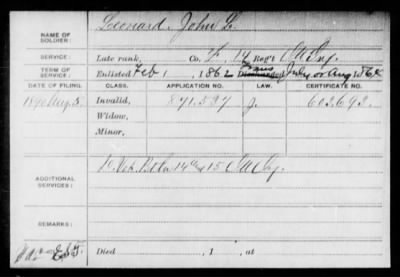 NAME OF SOLDIER: Leonard, John L.
SERVICE: Late rank, Co. F, 14 Reg't Inf.
TERM OF SERVICE: Enlisted Feb 1, 1862 Discharged July or Aug 186
DATE OF FILING. CLASS. APPLICATION NO. LAW. CERTIFICATE NO.
1890 Aug 5. Invalid, 871.537 J. 603.693.
Widow,
Minor,
ADDITIONAL SERVICES: 14 15 Inf.
REMARKS:
Died , 1 , at